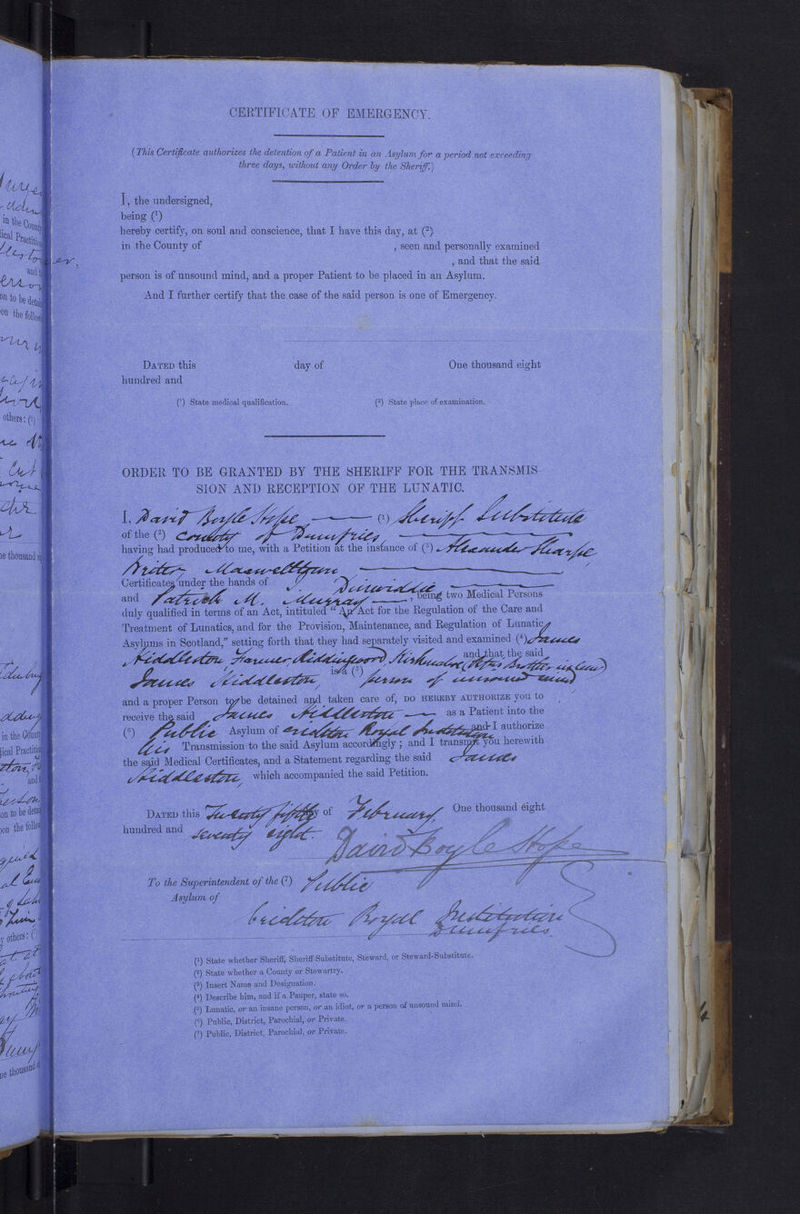 CERTIFICATE OF EMERGENCY.
(This Certificate authorizes the detention of a Patient in an Asylum for a period not exceeding
three days, without any Order by the Sheriff.)
I, the undersigned,
being (¹)
hereby certify, on soul and conscience, that I have this day, at (²)
in the County of , seen and personally examined
, and that the said
person is of unsound mind, and a proper Patient to be placed in an Asylum.
And I further certify that the case of the said person is one of Emergency.
DATED this day of One thousand eight
hundred and
(¹) State medical qualification. (²) State place of examination.
ORDER TO BE GRANTED BY THE SHERIFF FOR THE TRANSMIS
SION AND RECEPTION OF THE LUNATIC.
I, David Boyle Hope (¹) Sheriff Substitute
of the (²) County of Dumfries
having had produced to me, with a Petition at the instance of (³) Alexander Sharpe
Writer Maxwelltown
Certificates under the hands of Dinwiddie
and Patrick M. Murray, being two Medical Persons
duly qualified in terms of an Act, intituled "An Act for the Regulation of the Care and
Treatment of Lunatics, and for the Provision, Maintenance, and Regulation of Lunatic
Asylums in Scotland," setting forth that they had separately visited and examined (⁴) James
Middleton, Farmer, and that the said
James Middleton, is a (⁵) person of unsound mind,
and a proper Person to be detained and taken care of, DO HEREBY AUTHORIZE you to
receive the said James Middleton as a Patient into the
(⁶) Public Asylum of Crichton Royal Institution and I authorize
his Transmission to the said Asylum accordingly; and I transmit you herewith
the said Medical Certificates, and a Statement regarding the said James
Middleton, which accompanied the said Petition.
DATED this Twenty fifth day of February One thousand eight
hundred and seventy eight.
David Boyle Hope
To the Superintendent of the (⁷) Public
Asylum of
Crichton Royal Institution
Dumfries
(¹) State whether Sheriff, Sheriff-Substitute, Steward, or Steward-Substitute.
(²) State whether a County or Stewartry.
(³) Insert Name and Designation.
(⁴) Describe him, and if a Pauper, state so.
(⁵) Lunatic, or an insane person, or an idiot, or a person of unsound mind.
(⁶) Public, District, Parochial, or Private.
(⁷) Public, District, Parochial, or Private.